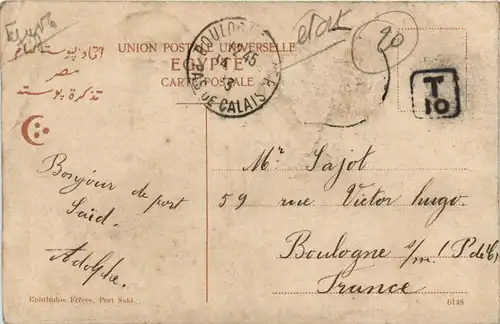 Egypte
UNION POSTALE UNIVERSELLE
EGYPTE
CARTE POSTALE
اتحاد پوسته عمومى
مصر
تذكرة بوسته
BOULOGNE
PAS DE CALAIS
20
T
10
Mr Sajot
59 rue Victor hugo.
Boulogne s/m. (P. de C)
France
Bonjour de port
Said.
Adolphe.
Ephthubos Frères, Port Said.
6148